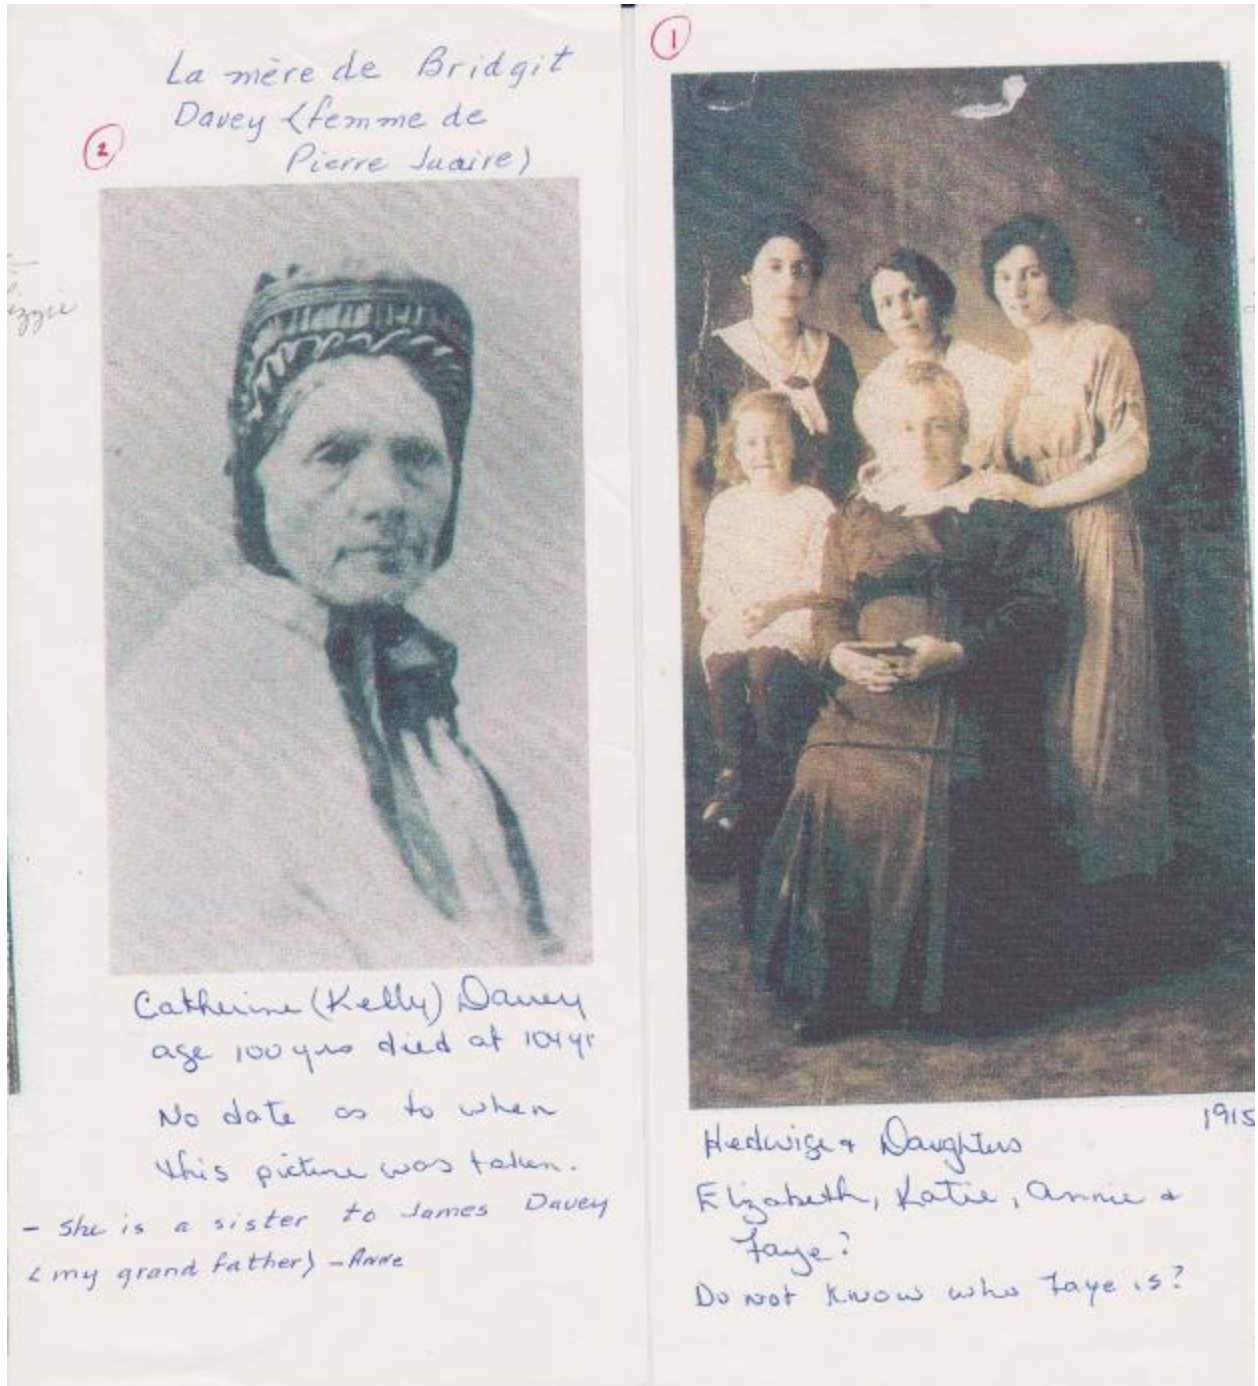 2
La mère de Bridgit
Davey (femme de
Pierre Juaire)
Catherine (Kelly) Davey
age 100 yrs died at 104 yr
No date as to when
this picture was taken.
- She is a sister to James Davey
(my grand father) - Anne
1
1915
Hedwige + Daughters
Elizabeth, Katie, Annie +
Faye?
Do not know who Faye is?